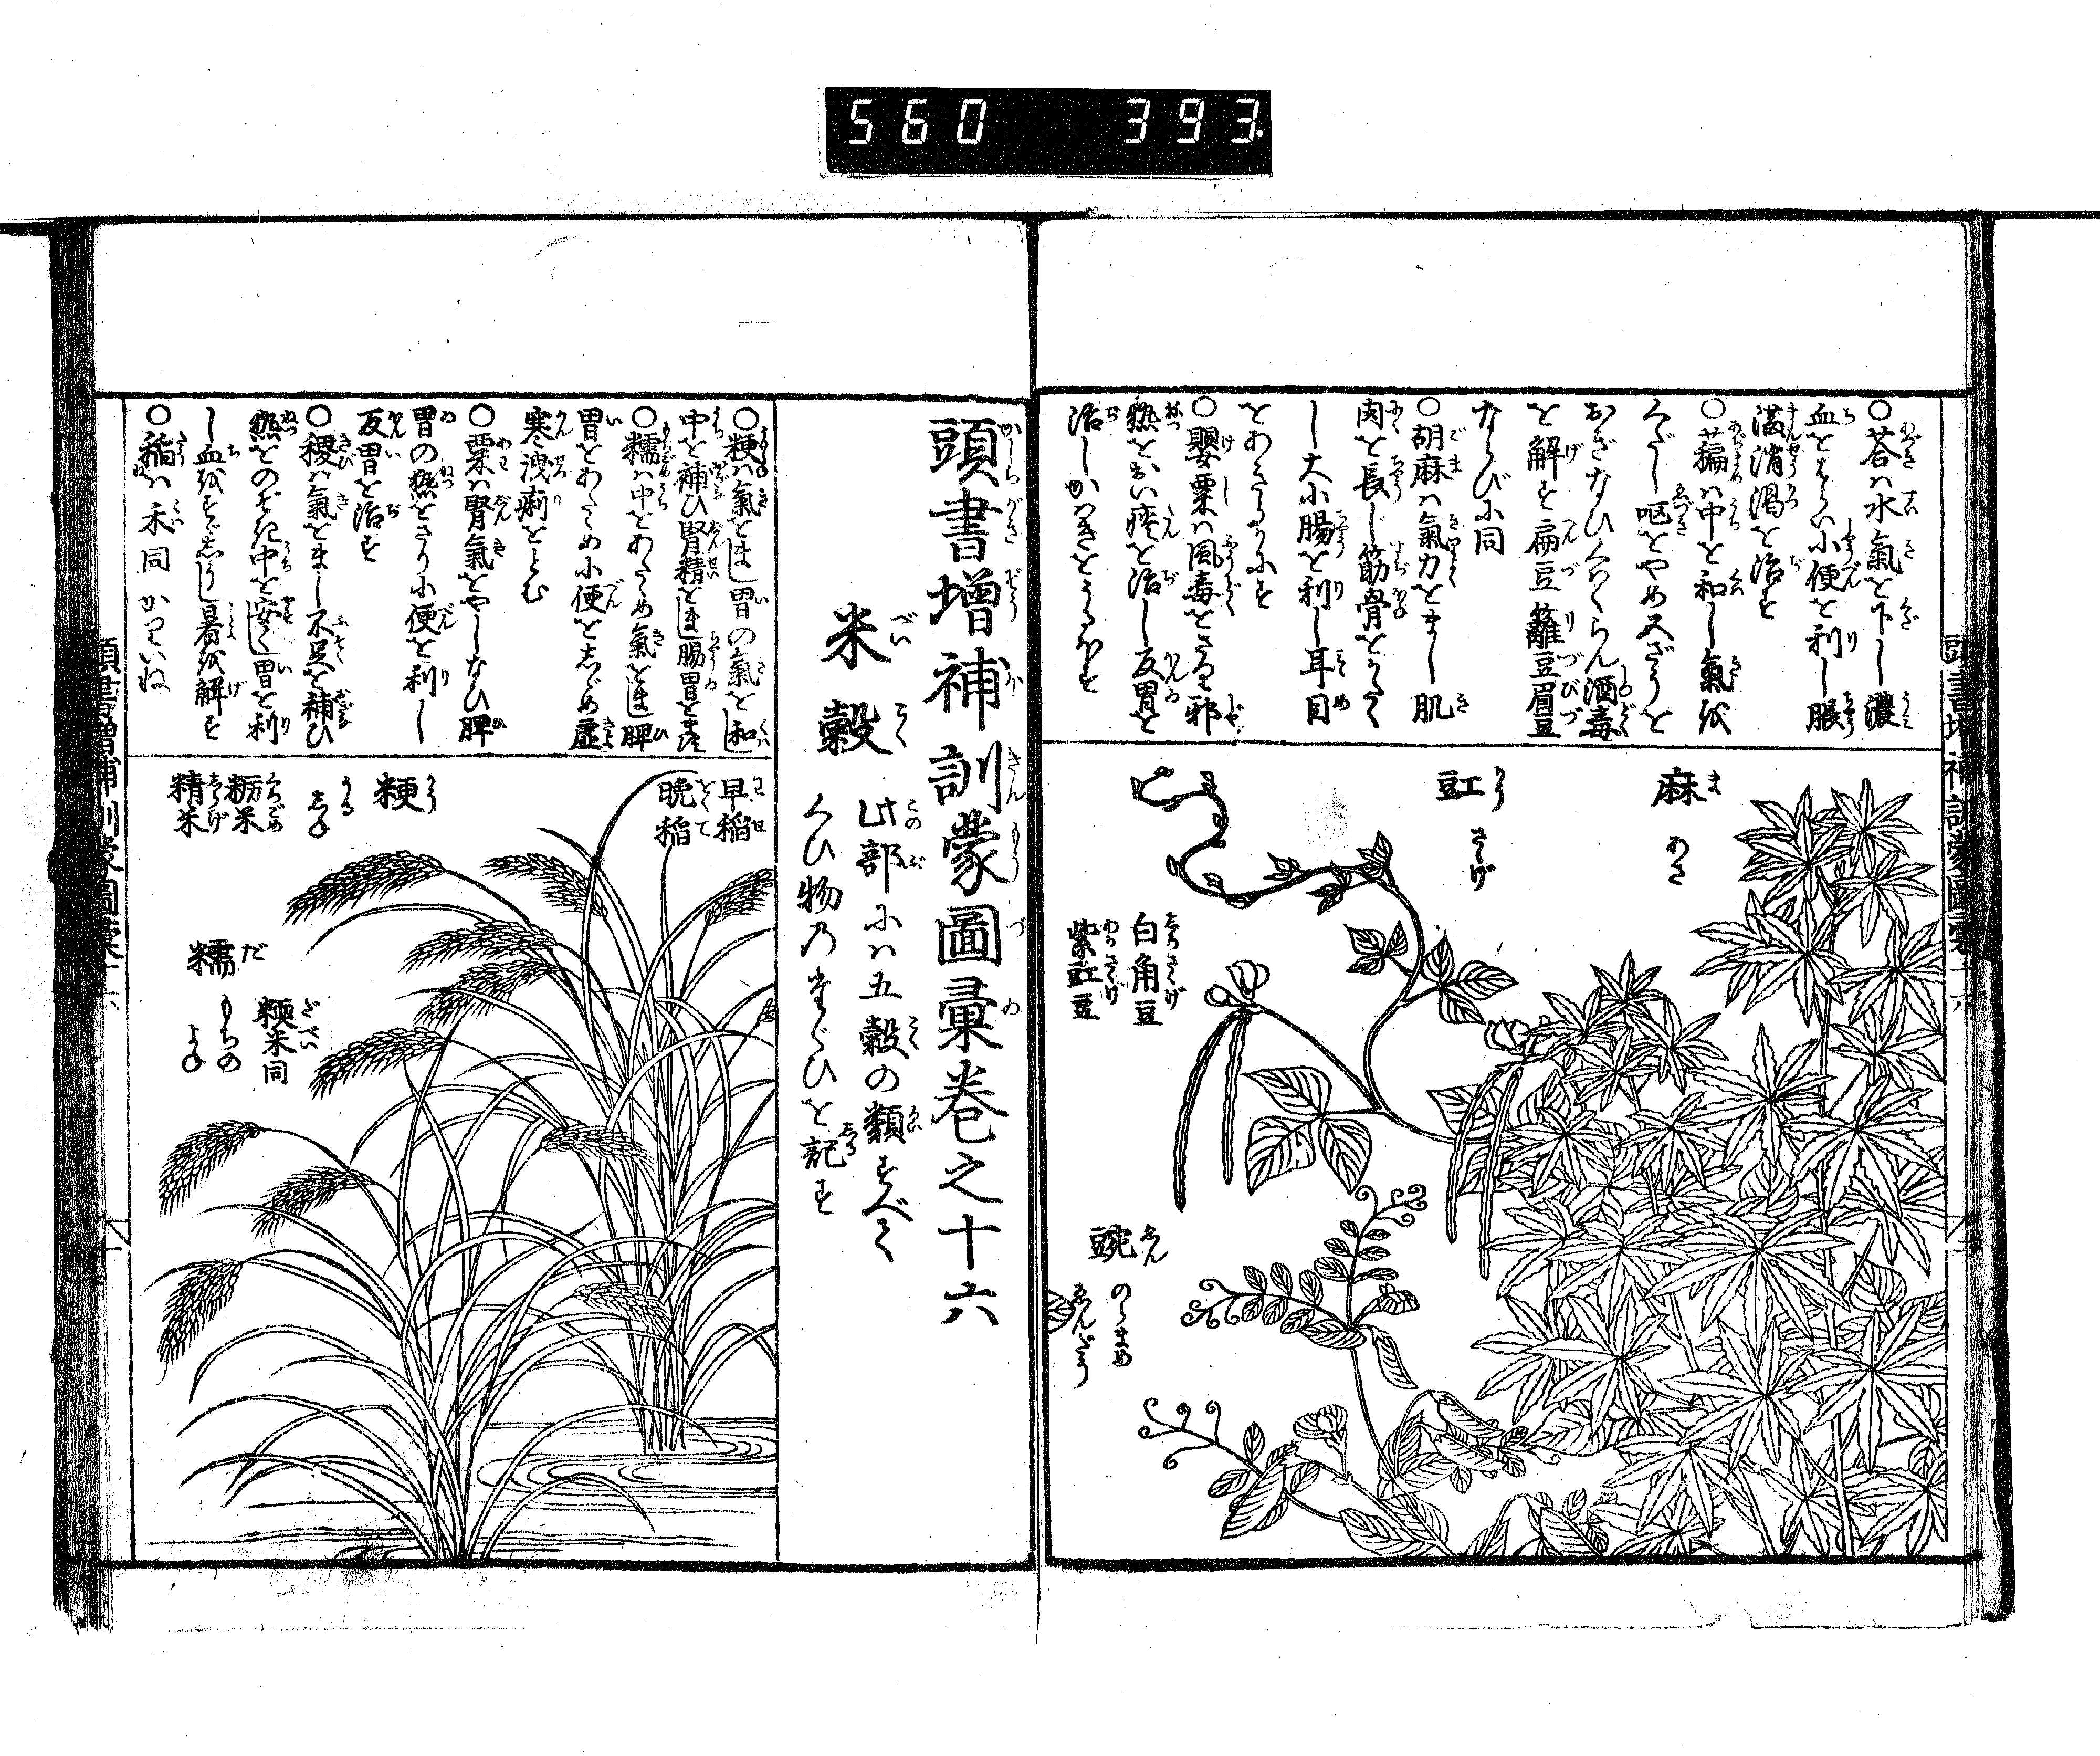 560 393
○荅ハ水氣を下し濃
血をはらい小便を利し脹
満消渇を治す
○藊ハ中を和し氣を
くだし呕をやめ又ざうを
おぎなひくわくらん酒毒
を解す扁豆籬豆眉豆
ならびに同
○胡麻ハ氣力をまし肌
肉を長じ筋骨をかたく
し大小腸を利し耳目
をあきらかにす
○罌粟ハ風毒をさり邪
熱をおい痰を治し反胃を
治しかはきをうるほす
麻 ま
あさ
豇 かう
さゝげ
白角豆 しろさゝげ
紫豇豆
豌 ゑん
のらまめ
ゑんどう
頭書増補訓蒙圖彙巻之十六
米穀 べいこく
此部にハ五穀の類すべて
くひ物のたぐひを記す
○粳ハ氣をまし胃の氣を和
中を補ひ腎精をまし腸胃を
○糯ハ中をあたゝめ氣をまし脾
胃をあたゝめ小便をしゞめ虚
寒洩痢をとむ
○粟ハ腎氣をやしなひ脾
胃の熱をさり小便を利し
反胃を治す
○稷ハ氣をまし不足を補ひ
熱をのぞき中を安し胃を利
し血をすゞしうし暑を解す
○稲ハ禾同かりいね
早稲 わせ
晩稲 おくて
粳 かう
うるしね
糏米
精米 しらげ
糯 だ
もちのよね
粳米同